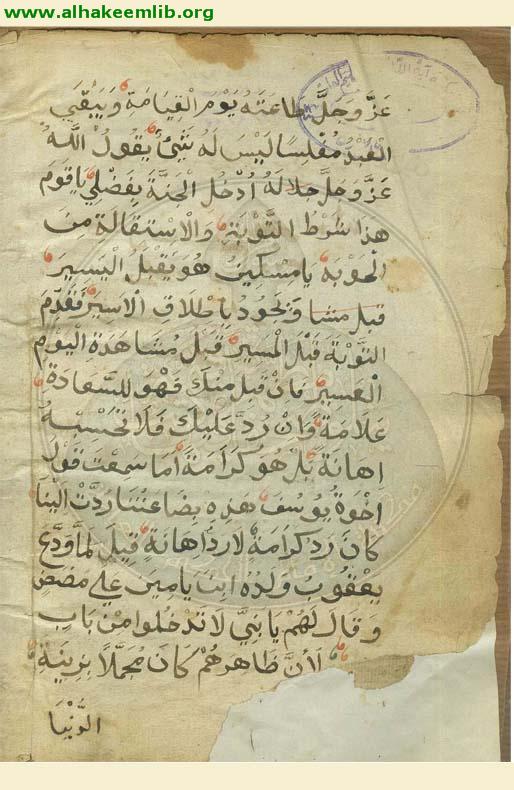 www.alhakeemlib.org
عَزَّ وَجَلَّ طَاعَتَهُ يَوْمَ القِيَامَةِ وَيَبْقَى
العَبْدُ مُفْلِسًا لَيْسَ لَهُ شَيْئٌ يَقُولُ اللَّهُ
عَزَّ وَجَلَّ جَلَالُهُ اُدْخُلِ الجَنَّةَ بِفَضْلِي يَا قَوْمِ
هَذَا شَرْطُ التَّوْبَةِ وَالْاسْتِقَالَةِ مِنَ
الحَوْبَةِ يَا مِسْكِينُ هُوَ يَقْبَلُ الْيَسِيرَ
وَيَجُودُ بِاطْلَاقِ الْاسِيرِ فَقَدِّمِ
التَّوْبَةَ قَبْلَ الْمَسِيرِ قَبْلَ مُشَاهَدَةِ الْيَوْمِ
الْعَسِيرِ فَانْ قَبِلَ مِنْكَ فَهُوَ لِلسَّعَادَةِ
عَلَامَةٌ وَانْ رُدَّ عَلَيْكَ فَلَا تَحْسَبْهُ
اِهَانَةً بَلْ هُوَ كَرَامَةٌ أَمَا سَمِعْتَ قَوْلَ
اخْوَةُ يُوسُفَ هَذِهِ بِضَاعَتُنَا رُدَّتْ الَيْنَا
كَانَ رَدَّ كَرَامَةٍ لَا رَدَّ اهَانَةٍ قِيلَ لَمَّا وَدَّعَ
يَعْقُوبُ وَلَدَهُ ابْنَ يَامِينَ عَلَى مَضَضٍ
وَقَالَ لَهُمْ يَا بَنِيَّ لَا تَدْخُلُوا مِنْ بَابٍ
لَأَنَّ ظَاهِرَهُمْ كَانَ مُجَمَّلًا بِزِينَةِ
الدُّنْيَا